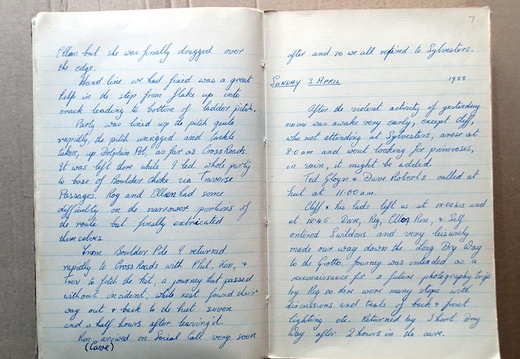 Elton but she was finally dragged over
the edge.
Hand line we had fixed was a great
help in the step from flake up into
crack leading to bottom of ladder pitch.
Party was lined up the pitch quite
rapidly, the pitch unrigged and tackle
taken, up Dolphin Pot, as far as Cross Roads.
It was left there while I led whole party
to base of Boulder Choke via Traverse
Passages. Roy and Elton had some
difficulty on the narrower portions of
the route but finally extricated
themselves.
From Boulder Pile I returned
rapidly to Cross Roads with Phil, Ken, &
Trev to fetch the kit, a journey that passed
without incident, while rest found their
way out & back to the hut seven
and a half hours after leaving it.
Ken arrived on Social Call very soon
(Cave)
7
after and so we all repired to Sylvesters.
SUNDAY 3 APRIL 1955
After the violent activity of yesterday
noone was awake very early, except Cliff,
who not attending at Sylvesters, arose at
8.0 am and went looking for primroses,
in rain, it might be added.
Ted Glyn & Dave Roberts called at
hut at 11.00 am.
Cliff & his lads left us at
at Dave, Roy, Elton, Ken, & Self
entered Swildons and very leisurely
made our way down the Long Dry Way
to the Grotto. Journey was intended as a
reconnaissance for a future photography trip
by Roy so there were many stops with
discussions and trials of back & front
lighting etc. Returned by Short Dry
Way after 2 hours in the cave.